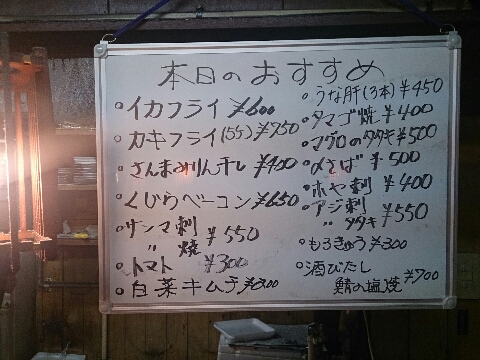 本日のおすすめ
・イカフライ ¥600
・カキフライ(5ケ) ¥750
・さんまみりん干し ¥400
・くじらベーコン ¥650
・サンマ刺
〃 焼 ¥550
・トマト ¥300
・白菜キムチ ¥300
・うな肝(3本) ¥450
・タマゴ焼 ¥400
・マグロのタタキ ¥500
・〆さば ¥500
・ホヤ刺 ¥400
・アジ刺
〃 タタキ ¥550
・もろきゅう ¥300
・酒びたし
鯖の塩焼 ¥700